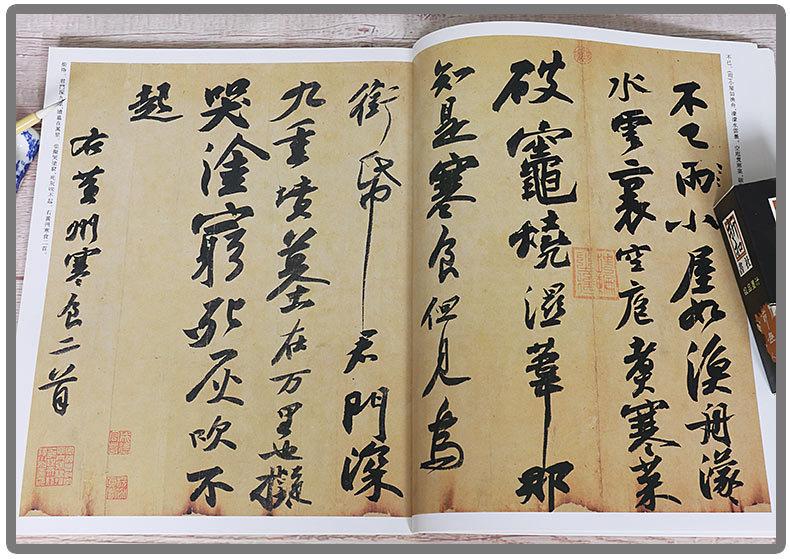 不已。[雨]小屋如漁舟，濛濛水雲裏。空庖煮寒菜，破
不已雨小屋如漁舟濛々
水雲裏空庖煮寒菜
破竈燒濕葦那
知是寒食但見烏
銜帋君門深
九重墳墓在万里也擬
哭塗窮死灰吹不
起
右黃州寒食二首
君門深九重，墳墓在万里。也擬哭塗窮，死灰吹不起。右黃州寒食二首。